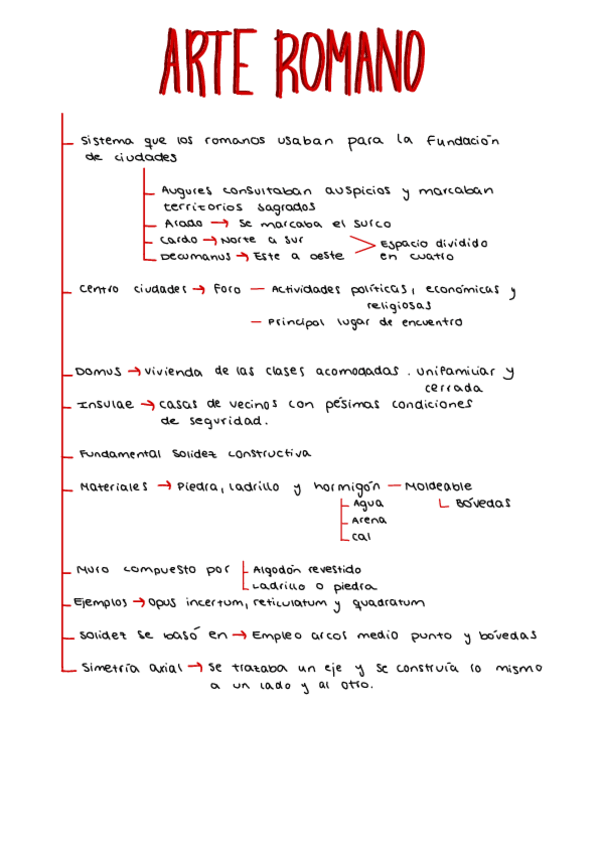 ARTE ROMANO
Sistema que los romanos usaban para la Fundación
de ciudades
Augures consultaban auspicios y marcaban
territorios sagrados
Arado → Se marcaba el surco
Cardo → Norte a sur
Decumanus → Este a oeste
Espacio dividido
en cuatro
Centro ciudades → Foro — Actividades políticas, económicas y
religiosas
— Principal lugar de encuentro
Domus → vivienda de las clases acomodadas. unifamiliar y
cerrada
Insulae → casas de vecinos con pésimas condiciones
de seguridad.
Fundamental solidez constructiva
Materiales → Piedra, ladrillo y hormigón — Moldeable
Agua
Bóvedas
Arena
Cal
Muro compuesto por
Algodón revestido
Ladrillo o piedra
Ejemplos → Opus incertum, reticulatum y quadratum
Solidez se basó en → Empleo arcos medio punto y bóvedas
Simetría axial → Se trazaba un eje y se construía lo mismo
a un lado y al otro.